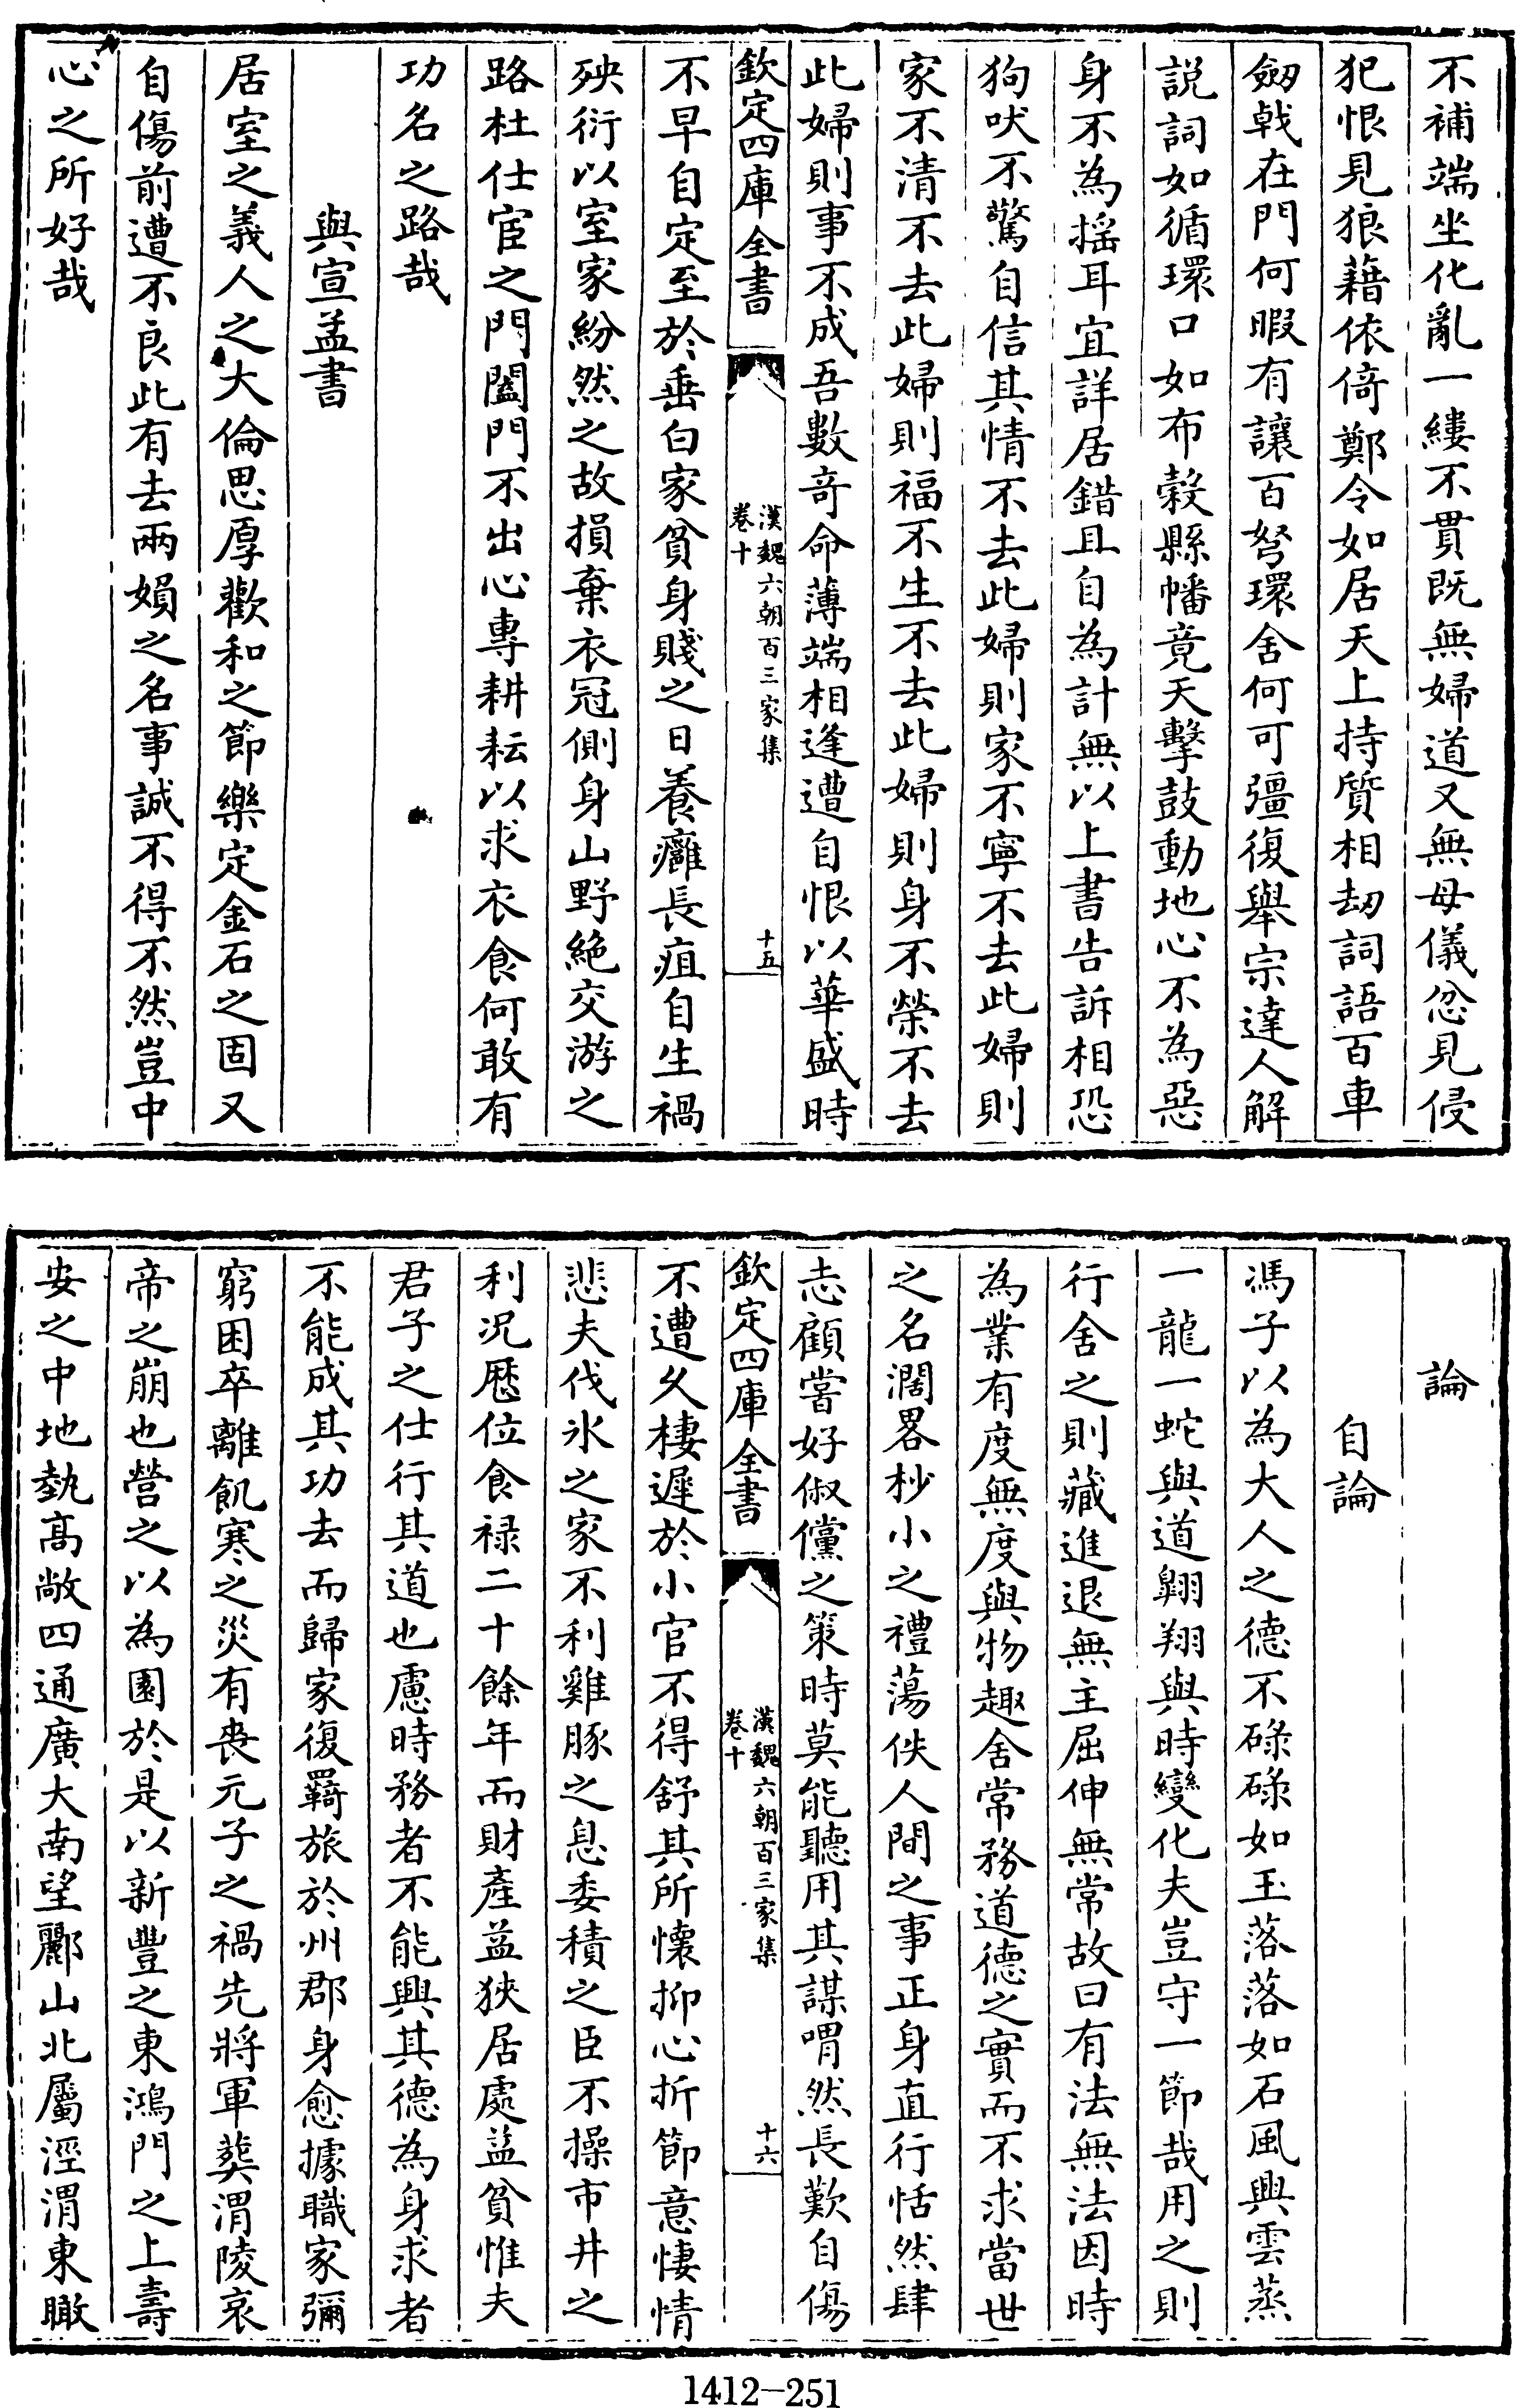 不補端坐化亂一縷不貫既無婦道又無母儀忿見侵
犯恨見狼藉依倚鄭令如居天上持質相劫詞語百車
劒戟在門何暇有讓百弩環舍何可彊復舉宗達人解
説詞如循環口如布穀縣幡竟天擊鼓動地心不為惡
身不為揺耳宜詳居錯且自為計無以上書告訴相恐
狗吠不驚自信其情不去此婦則家不寧不去此婦則
家不清不去此婦則福不生不去此婦則身不榮不去
此婦則事不成吾數奇命薄端相逢遭自恨以華盛時
欽定四庫全書
漢魏六朝百三家集
卷十
十五
不早自定至於垂白家貧身賤之日養癰長疽自生禍
殃衍以室家紛然之故損棄衣冠側身山野絶交游之
路杜仕宦之門闔門不出心專耕耘以求衣食何敢有
功名之路哉
與宣孟書
居室之義人之大倫思厚歡和之節樂定金石之固又
自傷前遭不良此有去兩嬪之名事誠不得不然豈中
心之所好哉
論
自論
馮子以為大人之德不碌碌如玉落落如石風興雲蒸
一龍一蛇與道翺翔與時變化夫豈守一節哉用之則
行舍之則藏進退無主屈伸無常故曰有法無法因時
為業有度無度與物趣舍常務道德之實而不求當世
之名濶畧杪小之禮蕩佚人間之事正身直行恬然肆
志顧嘗好俶儻之策時莫能聽用其謀喟然長歎自傷
欽定四庫全書
漢魏六朝百三家集
卷十
十六
不遭久棲遲於小官不得舒其所懷抑心折節意悽情
悲夫伐氷之家不利雞豚之息委積之臣不操市井之
利况歴位食禄二十餘年而財產益狹居處益貧惟夫
君子之仕行其道也慮時務者不能興其德為身求者
不能成其功去而歸家復羇旅於州郡身愈據職家彌
窮困卒離飢寒之災有喪元子之禍先將軍葬渭陵哀
帝之崩也營之以為園於是以新豐之東鴻門之上壽
安之中地埶髙敞四通廣大南望酈山北屬涇渭東瞰
1412—251